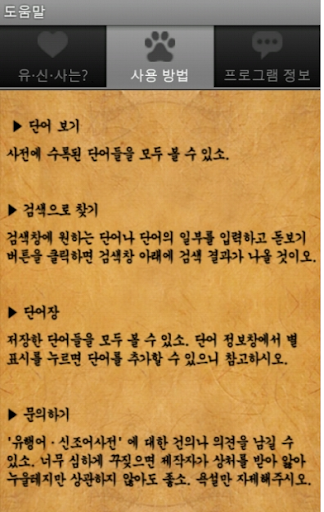 도움말
유·신·사는?
사용 방법
프로그램 정보
▶ 단어 보기
사전에 수록된 단어들을 모두 볼 수 있소.
▶ 검색으로 찾기
검색창에 원하는 단어나 단어의 일부를 입력하고 돋보기
버튼을 클릭하면 검색창 아래에 검색 결과가 나올 것이오.
▶ 단어장
저장한 단어들을 모두 볼 수 있소. 단어 정보창에서 별
표시를 누르면 단어를 추가할 수 있으니 참고하시오.
▶ 문의하기
'유행어·신조어사전' 에 대한 건의나 의견을 남길 수
있소. 너무 심하게 꾸짖으면 제작자가 상처를 받아 앓아
누울테지만 상관하지 않아도 좋소. 욕설만 자제해주시오.